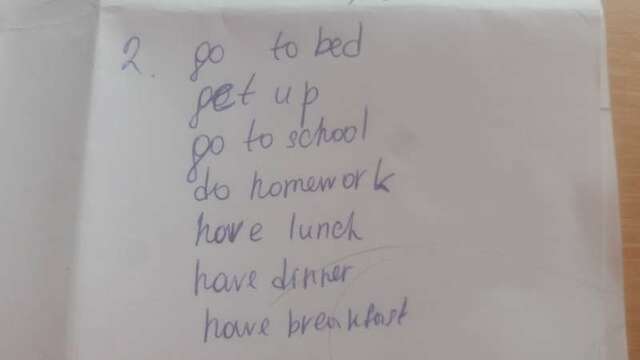 2. go to bed
get up
go to school
do homework
have lunch
have dinner
have breakfast